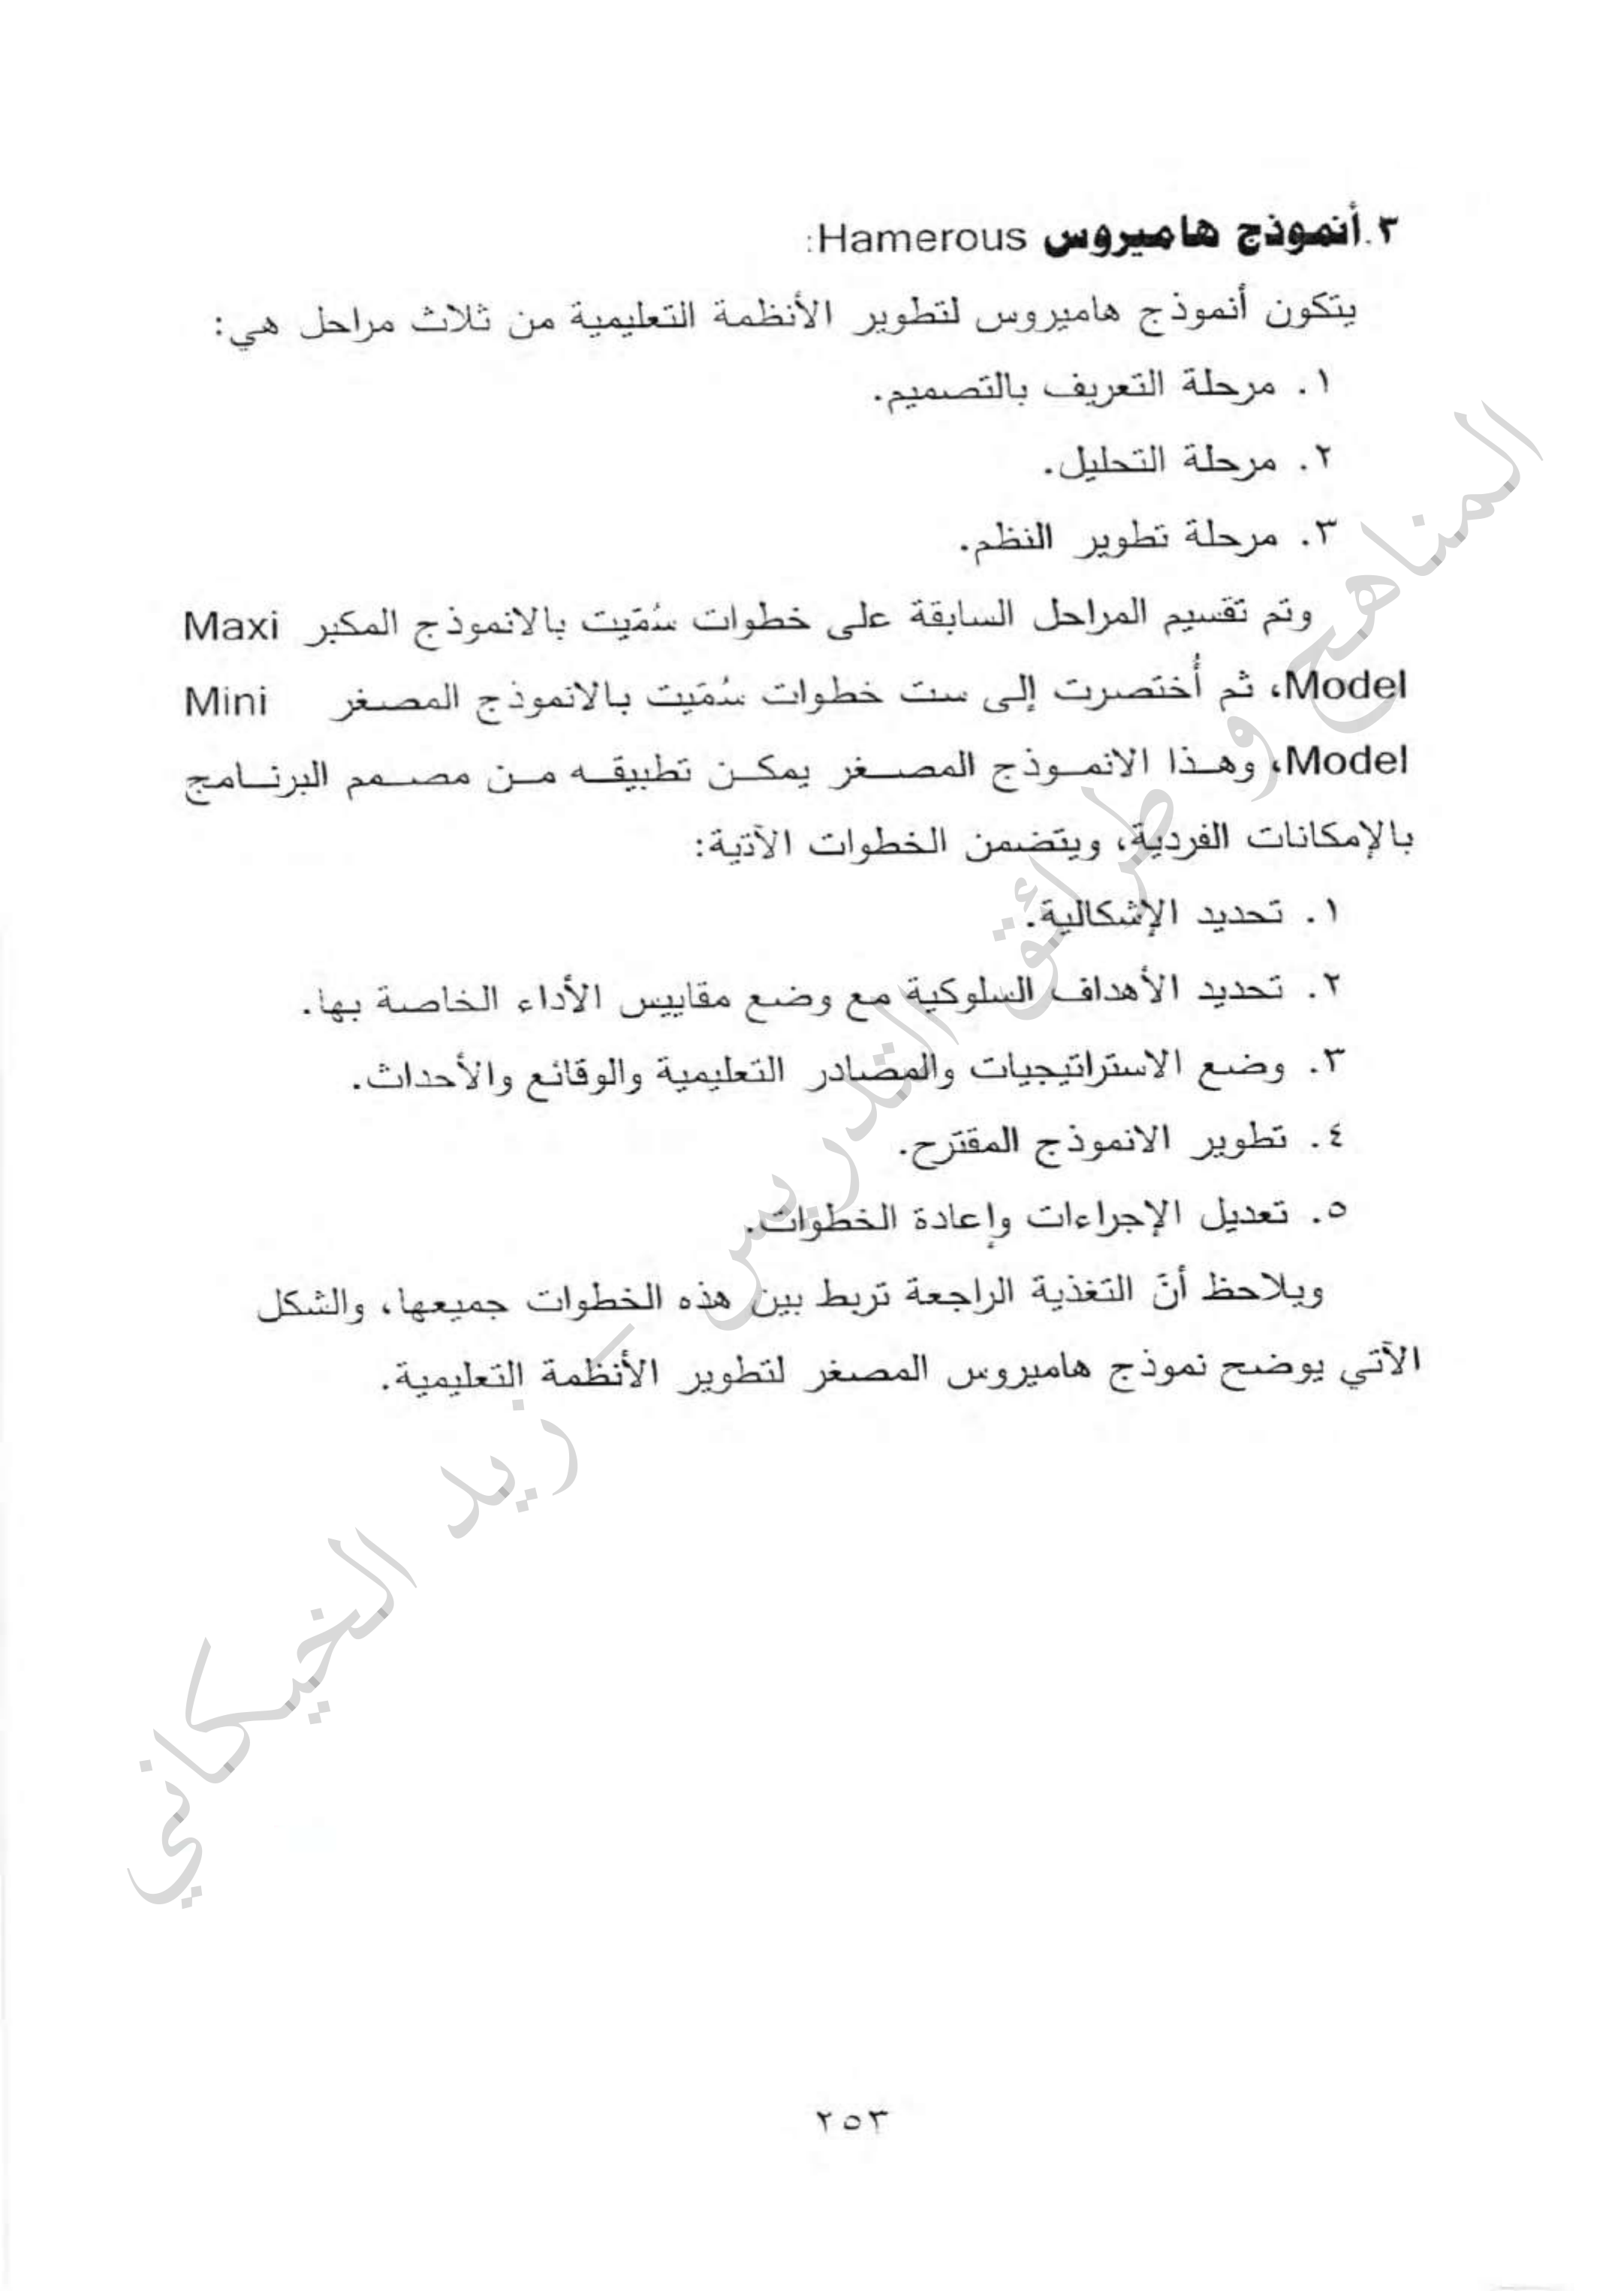 ٣.أنموذج هاميروس Hamerous:
يتكون أنموذج هاميروس لتطوير الأنظمة التعليمية من ثلاث مراحل هي:
١. مرحلة التعريف بالتصميم.
٢. مرحلة التحليل.
٣. مرحلة تطوير النظم.
وتم تقسيم المراحل السابقة على خطوات سُمّيت بالانموذج المكبر Maxi
Model، ثم أُختصرت إلى ست خطوات سُمّيت بالانموذج المصغر Mini
Model، وهذا الانموذج المصغر يمكن تطبيقه من مصمم البرنامج
بالإمكانات الفردية، ويتضمن الخطوات الآتية:
١. تحديد الإشكالية.
٢. تحديد الأهداف السلوكية مع وضع مقاييس الأداء الخاصة بها.
٣. وضع الاستراتيجيات والمصادر التعليمية والوقائع والأحداث.
٤. تطوير الانموذج المقترح.
٥. تعديل الإجراءات وإعادة الخطوات.
ويلاحظ أنّ التغذية الراجعة تربط بين هذه الخطوات جميعها، والشكل
الآتي يوضح نموذج هاميروس المصغر لتطوير الأنظمة التعليمية.
المناهج و طرائق التدريس – زيد الخيكاني
٢٥٣